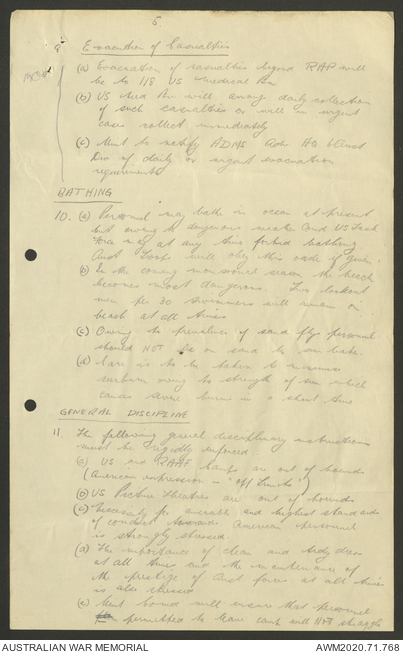 5.
9 Evacuation of Casualties
(a) Evacuation of casualties beyond RAP will
be to 118 US Medical Bn
(b) US Med Bn will arrange daily collection
of such casualties or will in urgent
cases collect immediately
(c) Unit to notify ADMS Adv HQ 6 Aust
Div of daily or urgent evacuation
requirements
BATHING
10. (a) Personnel may bathe in ocean at present
but owing to dangerous Comd US Task
Force may at any time forbid bathing
Aust Troops will obey this order if given.
(b) In the coming monsoonal season the beach
becomes most dangerous. Two lookout
men per 30 swimmers will remain on
beach at all times
(c) Owing to prevalence of sand flys personnel
should NOT lie on sand to sun bake.
(d) Care is to be taken to minimise
sunburn owing to strength of sun which
causes severe burns in a short time
GENERAL DISCIPLINE
11. The following general disciplinary instructions
must be rigidly enforced.
(a) US and RAAF camps are out of bounds
(American expression is "Off Limits")
(b) US Picture Theatres are out of bounds
(c) Necessity for amicable and highest standards
of conduct towards American personnel
is strongly stressed.
(d) The importance of clean and tidy dress
at all times and the maintenance of
the prestige of Aust forces at all times
is also stressed
(e) Unit Comds will ensure that personnel
permitted to leave camp will NOT straggle
AUSTRALIAN WAR MEMORIAL
AWM2020.71.768